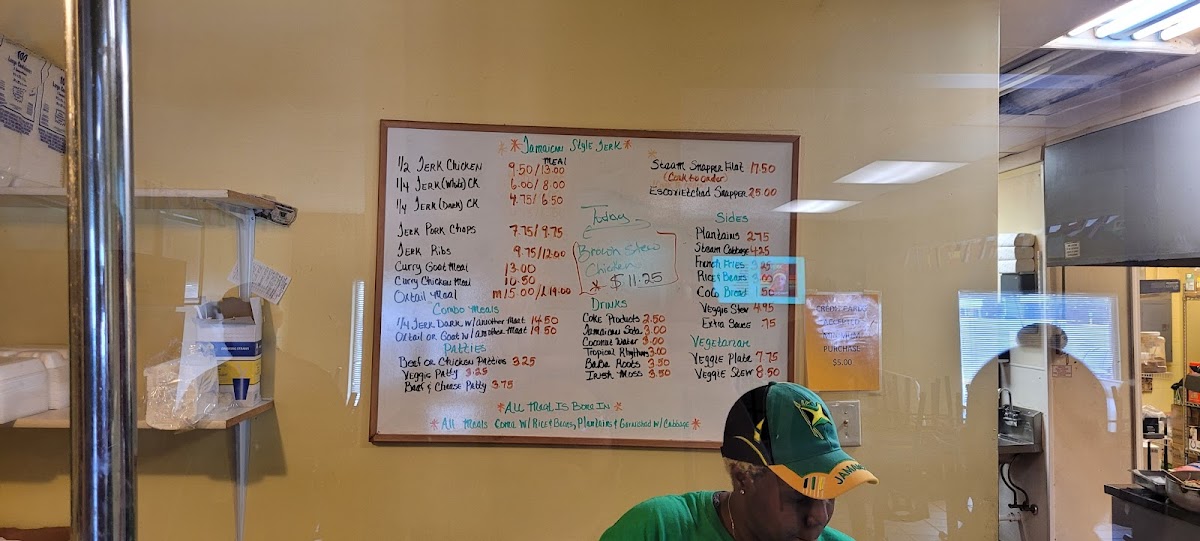 Jamaican Style Jerk
MEAL
1/2 JERK CHICKEN 9.50/13.00
1/4 JERK (White) CK 6.00/8.00
1/4 JERK (DARK) CK 4.75/6.50
JERK PORK CHOPS 7.75/9.75
JERK RIBS 9.75/12.00
Curry Goat Meal 13.00
Curry Chicken Meal 10.50
Oxtail Meal m15.00/L19.00
Combo Meals
1/4 JERK DARK w/another meat 14.50
Oxtail or Goat w/another meat 19.50
Patties
Beef or Chicken Patties 3.25
Veggie Patty 3.25
Beef & Cheese Patty 3.75
Today
Brown Stew
Chicken
$11.25
DRINKS
Coke Products 2.50
Jamaican Soda 3.00
Coconut Water 3.00
Tropical Rhythms 3.00
Baba Roots 3.50
Irish Moss 3.50
Steam Snapper Filat 17.50
(Cook to order)
Escovietchad Snapper 25.00
Sides
Plantains 2.75
Steam Cabbage 4.25
French Fries
Rice & Beans 3.00
Coco Bread .50
Veggie Stew 4.95
Extra Sauce .75
Vegetarian
Veggie Plate 7.75
Veggie Stew 8.50
ALL Meat IS Bone IN
All Meals Come w/ Rice & Beans, Plantains & Garnished w/ Cabbage
CREDIT CARD
ACCEPTED
MINIMUM
PURCHASE
$5.00
JAMAICA
100